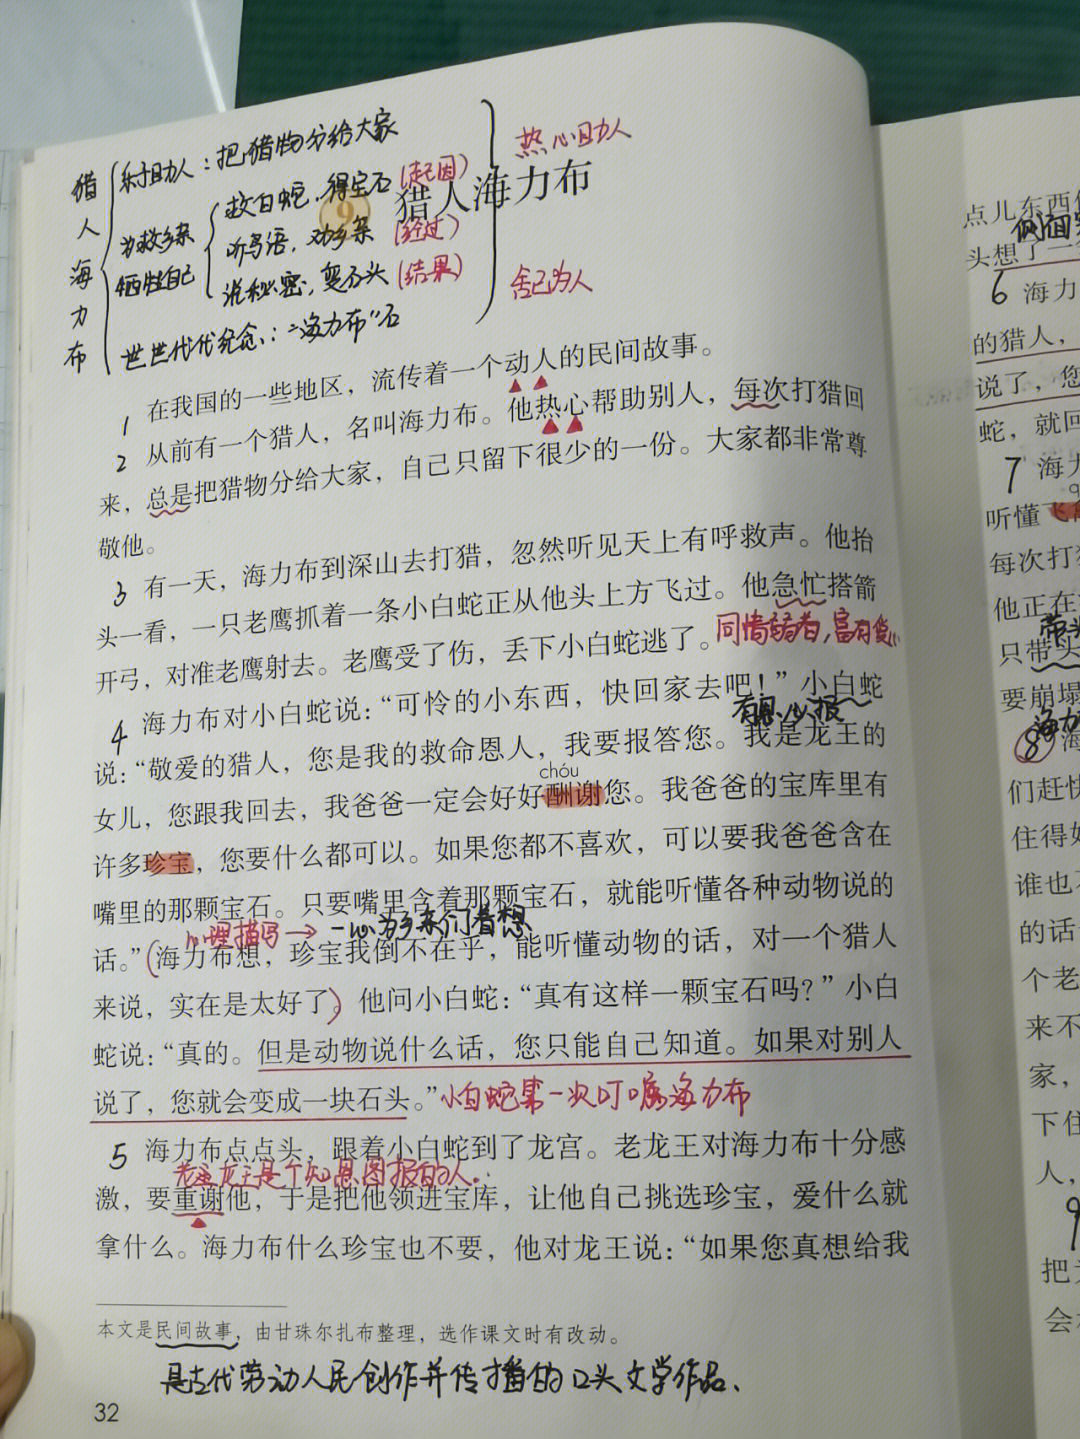 猎人海力布
乐于助人：把猎物分给大家
为救乡亲
牺牲自己
救白蛇，得宝石（起因）
听鸟语，劝乡亲（经过）
说秘密，变石头（结果）
世世代代纪念：“海力布”石
热心助人
舍己为人
9 猎人海力布
1 在我国的一些地区，流传着一个动人的民间故事。
2 从前有一个猎人，名叫海力布。他热心帮助别人，每次打猎回
来，总是把猎物分给大家，自己只留下很少的一份。大家都非常尊
敬他。
3 有一天，海力布到深山去打猎，忽然听见天上有呼救声。他抬
头一看，一只老鹰抓着一条小白蛇正从他头上方飞过。他急忙搭箭
开弓，对准老鹰射去。老鹰受了伤，丢下小白蛇逃了。
同情弱者，富有爱心
4 海力布对小白蛇说：“可怜的小东西，快回家去吧！”小白蛇
有恩必报
说：“敬爱的猎人，您是我的救命恩人，我要报答您。我是龙王的
chóu
女儿，您跟我回去，我爸爸一定会好好酬谢您。我爸爸的宝库里有
许多珍宝，您要什么都可以。如果您都不喜欢，可以要我爸爸含在
嘴里的那颗宝石。只要嘴里含着那颗宝石，就能听懂各种动物说的
心理描写→一心为乡亲们着想
话。”（海力布想，珍宝我倒不在乎，能听懂动物的话，对一个猎人
来说，实在是太好了）他问小白蛇：“真有这样一颗宝石吗？”小白
蛇说：“真的。但是动物说什么话，您只能自己知道。如果对别人
说了，您就会变成一块石头。”小白蛇第一次叮嘱海力布
5 海力布点点头，跟着小白蛇到了龙宫。老龙王对海力布十分感
龙王是个知恩图报的人.
激，要重谢他，于是把他领进宝库，让他自己挑选珍宝，爱什么就
拿什么。海力布什么珍宝也不要，他对龙王说：“如果您真想给我
本文是民间故事，由甘珠尔扎布整理，选作课文时有改动。
是古代劳动人民创作并传播的口头文学作品.
32
点儿东西
侧面
头想了一
6 海力
的猎人，
说了，您
蛇，就回
7 海力
听懂飞
每次打猎
他正在
带头
只带头
要崩塌
海力
8 海
们赶快
住得好
谁也
的话
个老
来不
家，
下住
人，
9
把
会